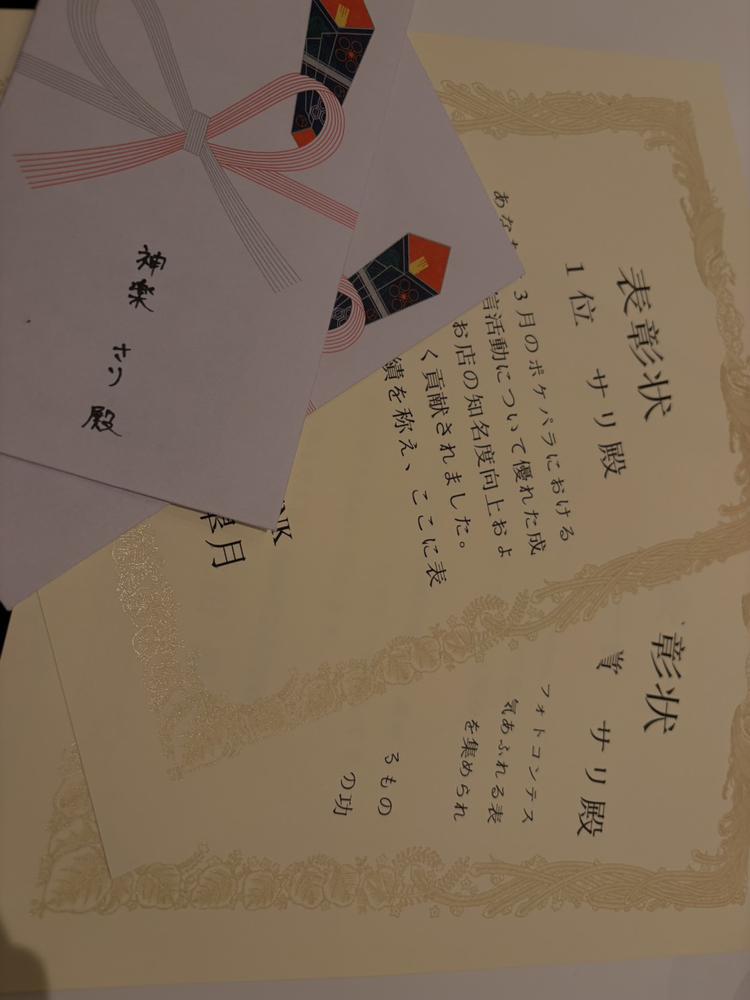 神楽 さり 殿
表彰状
1位 サリ殿
あな
3月のポケパラにおける
言活動について優れた成
お店の知名度向上およ
く貢献されました。
績を称え、ここに表
NK
皐月
彰状
賞 サリ殿
フォトコンテス
気あふれる表
を集められ
るもの
の功